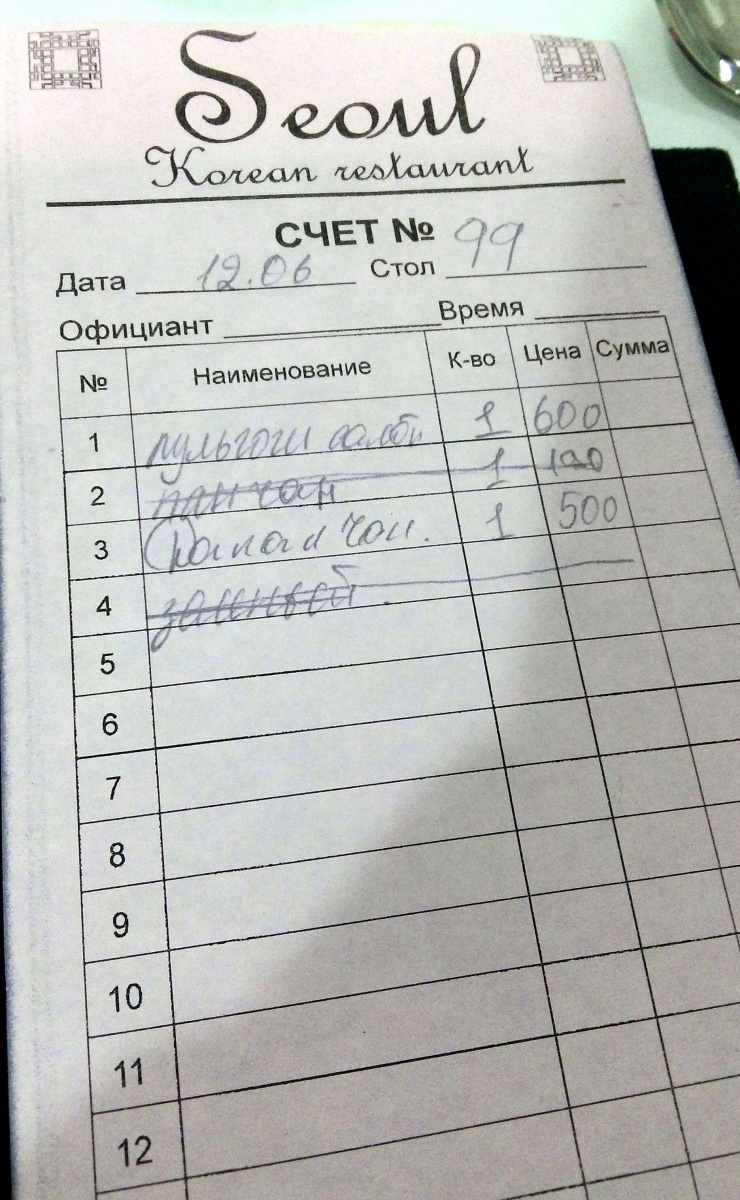 Seoul
Korean restaurant
СЧЕТ №
Дата 12.06 Стол 99
Официант Время
№ Наименование К-во Цена Сумма
1 пульгоги 1 600
2 панчан 1 100
3 1 500
4
5
6
7
8
9
10
11
12